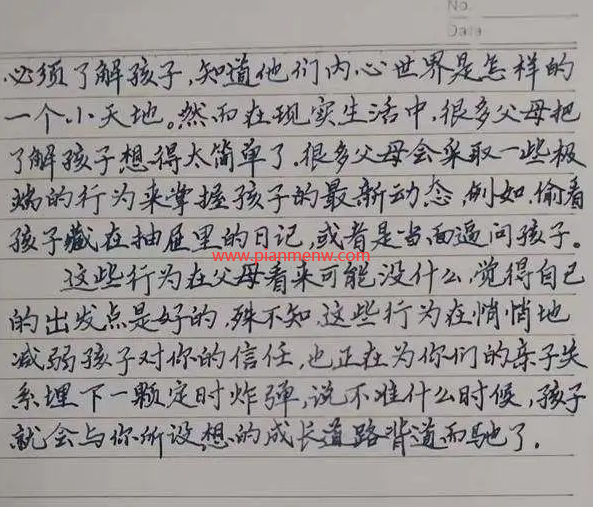 No.
Date
必须了解孩子,知道他们内心世界是怎样的
一个小天地。然而在现实生活中,很多父母把
了解孩子想得太简单了,很多父母会采取一些极
端的行为来掌握孩子的最新动态,例如,偷看
孩子藏在抽屉里的日记,或者是当面逼问孩子。
www.pianmenw.com
这些行为在父母看来可能没什么,觉得自己
的出发点是好的,殊不知,这些行为在悄悄地
减弱孩子对你的信任,也正在为你们的亲子关
系埋下一颗定时炸弹,说不准什么时候,孩子
就会与你所设想的成长道路背道而驰了。